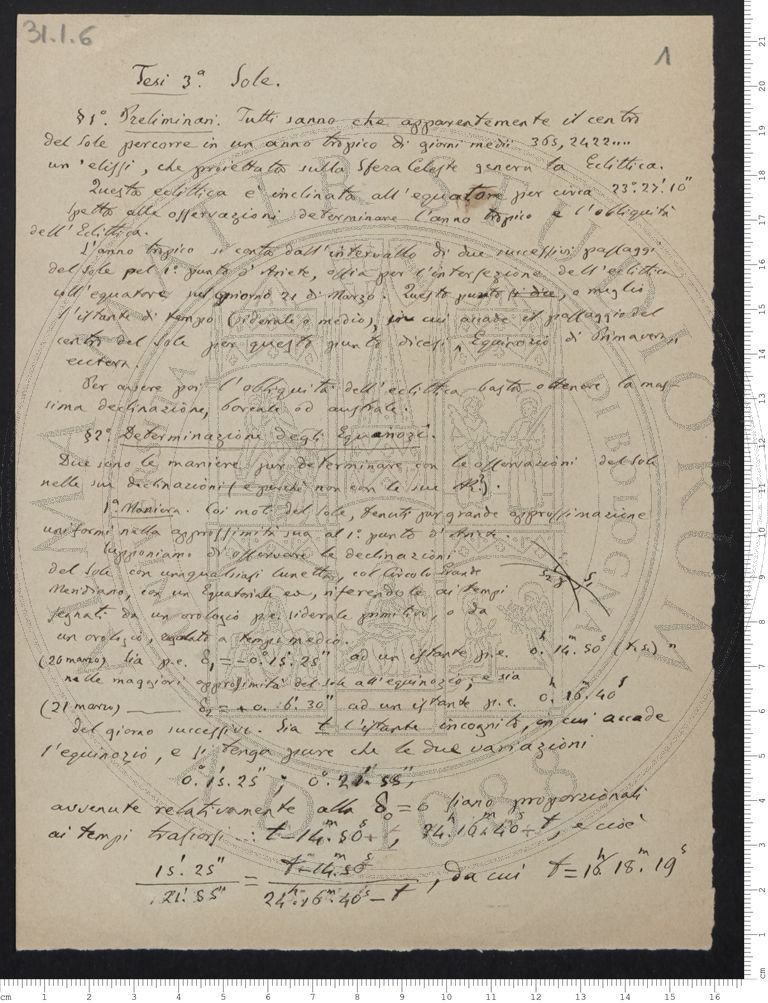 31.1.6
1
Tesi 3ª. Sole.
§ 1º. Preliminari. Tutti sanno che apparentemente il centro
del Sole percorre in un anno tropico di giorni medii 365,2422....
un'elissi, che proiettata sulla Sfera Celeste genera la Eclittica.
Questa eclittica è inclinata all'equatore per circa 23º.27'.10"
Spetta alle osservazioni determinare l'anno tropico e l'obliquità
dell'Eclittica.
L'anno tropico si conta dall'intervallo di due successivi passaggi
del Sole pel 1º punto d'Ariete, ossia per l'intersezione dell'eclittica
coll'equatore nel giorno 21 di Marzo. Questo punto si dice, o meglio
l'istante di tempo (siderale o medio), in cui accade il passaggio del
centro del Sole per questo punto dicesi Equinozio di Primavera,
eccetera.
Per avere poi l'obliquità dell'eclittica basta ottenere la mas-
sima declinazione, boreale od australe.
§ 2º. Determinazione degli Equinozi.
Due sono le maniere per determinare con le osservazioni del Sole
nelle sue declinazioni (e perchè non con le sue AR?).
1ª Maniera. Coi moti del Sole, tenuti per grande approssimazione
uniformi nella approssimità sua al 1º punto d'Ariete.
Supponiamo di osservare le declinazioni
del Sole con una qualsiasi lunetta, col Circolo
Meridiano, con un Equatoriale ecc, riferendole ai tempi
segnati da un orologio p.e. siderale primitivo, o da
un orologio, a tempi medio.
(20 marzo) Sia p.e. δ₁ = -0º.15'.25" ad un istante p.e. 0h.14m.50s (t.s.)
nelle maggiori approssimità del Sole all'equinozio, e sia
(21 marzo) —— δ₂ = +0.6'.30" ad un istante p.e. 0h.16m.40s
del giorno successivo. Sia t l'istante incognito, in cui accade
l'equinozio, e si tenga pure che le due variazioni
0º.15'.25" ; 0º.21'.55",
avvenute relativamente alla δ₀ = 0 siano proporzionali
ai tempi trascorsi : t-14m.50s, 24h.16m.40s - t, e cioè
15'.25" / 21'.55" = t-14m.50s / 24h.16m.40s - t, da cui t = 16h.18m.19s